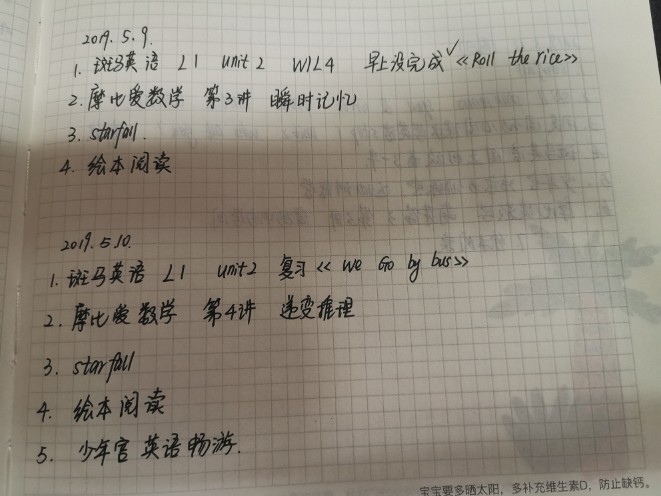 2019.5.9.
1. 斑马英语 L1 Unit 2 W1L4 早上没完成✓《Roll the rice》
2. 摩比爱数学 第3讲 瞬时记忆
3. starfall.
4. 绘本阅读
2019.5.10.
1. 斑马英语 L1 Unit2 复习《We Go by bus》
2. 摩比爱数学 第4讲 递变推理
3. starfall
4. 绘本阅读
5. 少年宫 英语畅游.
宝宝要多晒太阳，多补充维生素D，防止缺钙。